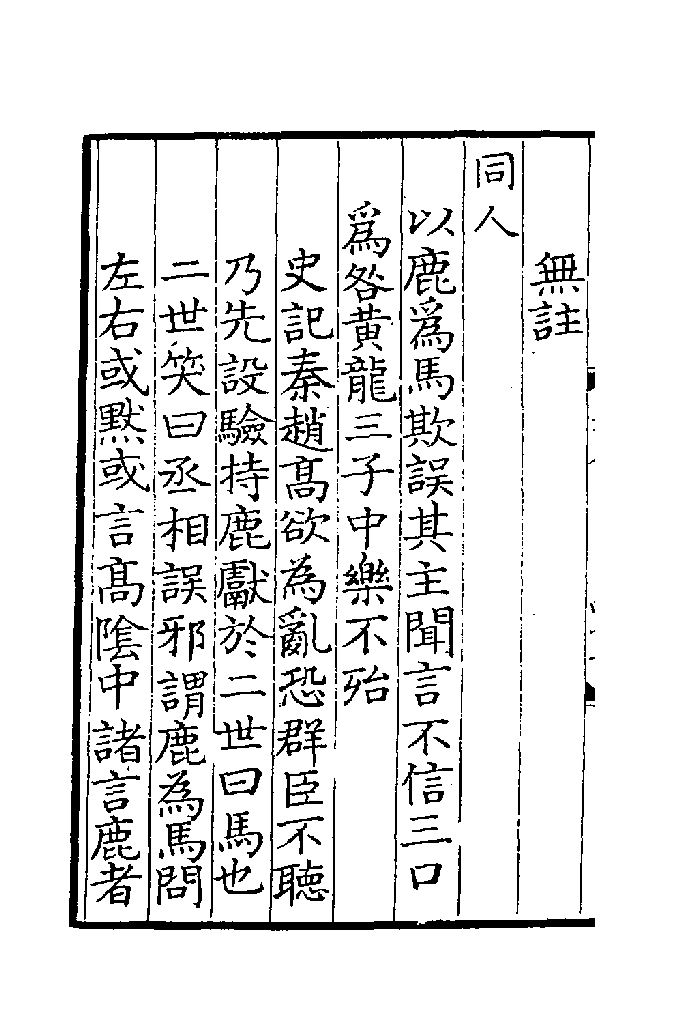 無註
同人
以鹿爲馬欺誤其主聞言不信三口
爲咎黄龍三子中樂不殆
史記秦趙髙欲為亂恐群臣不聽
乃先設驗持鹿獻於二世曰馬也
二世笑曰丞相誤邪謂鹿為馬問
左右或黙或言髙隂中諸言鹿者